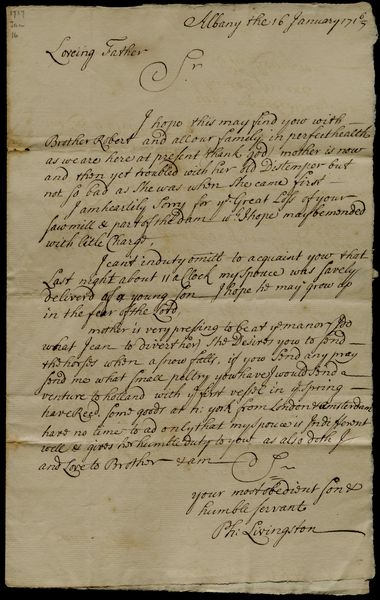 1717
Jan
16
Albany the 16 January 1716/7
Loveing Father
Sr.
I hope this may find you with
Brother Robert and all our family in perfect health
as we are here at present thank god, mother is now
and then yet troubled with her old Distemper but
not so bad as She was when She came first
I am heartily Sorry for ye Great Loss of your
saw mill & part of the dam wch I hope may be mended
with litle Charge,
I cant in duty omitt to acquaint you that
Last night about 11 a Clock my Spouse was Safely
deliverd of a young Son I hope he may grow up
in the fear of the Lord,
mother is very pressing to be at ye manor I do
what I can to divert her, She Desires you to send
the horses when a snow falls, if you Send any pray
send me what small peltry you have I would Send a
venture to holland with ye first vessel in ye Spring
have Recd. some goods at N: york from London & amsterdam
have no time to ad only that my Spouse is Indifferent
well & gives her humble duty to you as also doth I
and Love to Brother & am
Sr
your most obedient Son &
humble Servant
Ph: Livingston